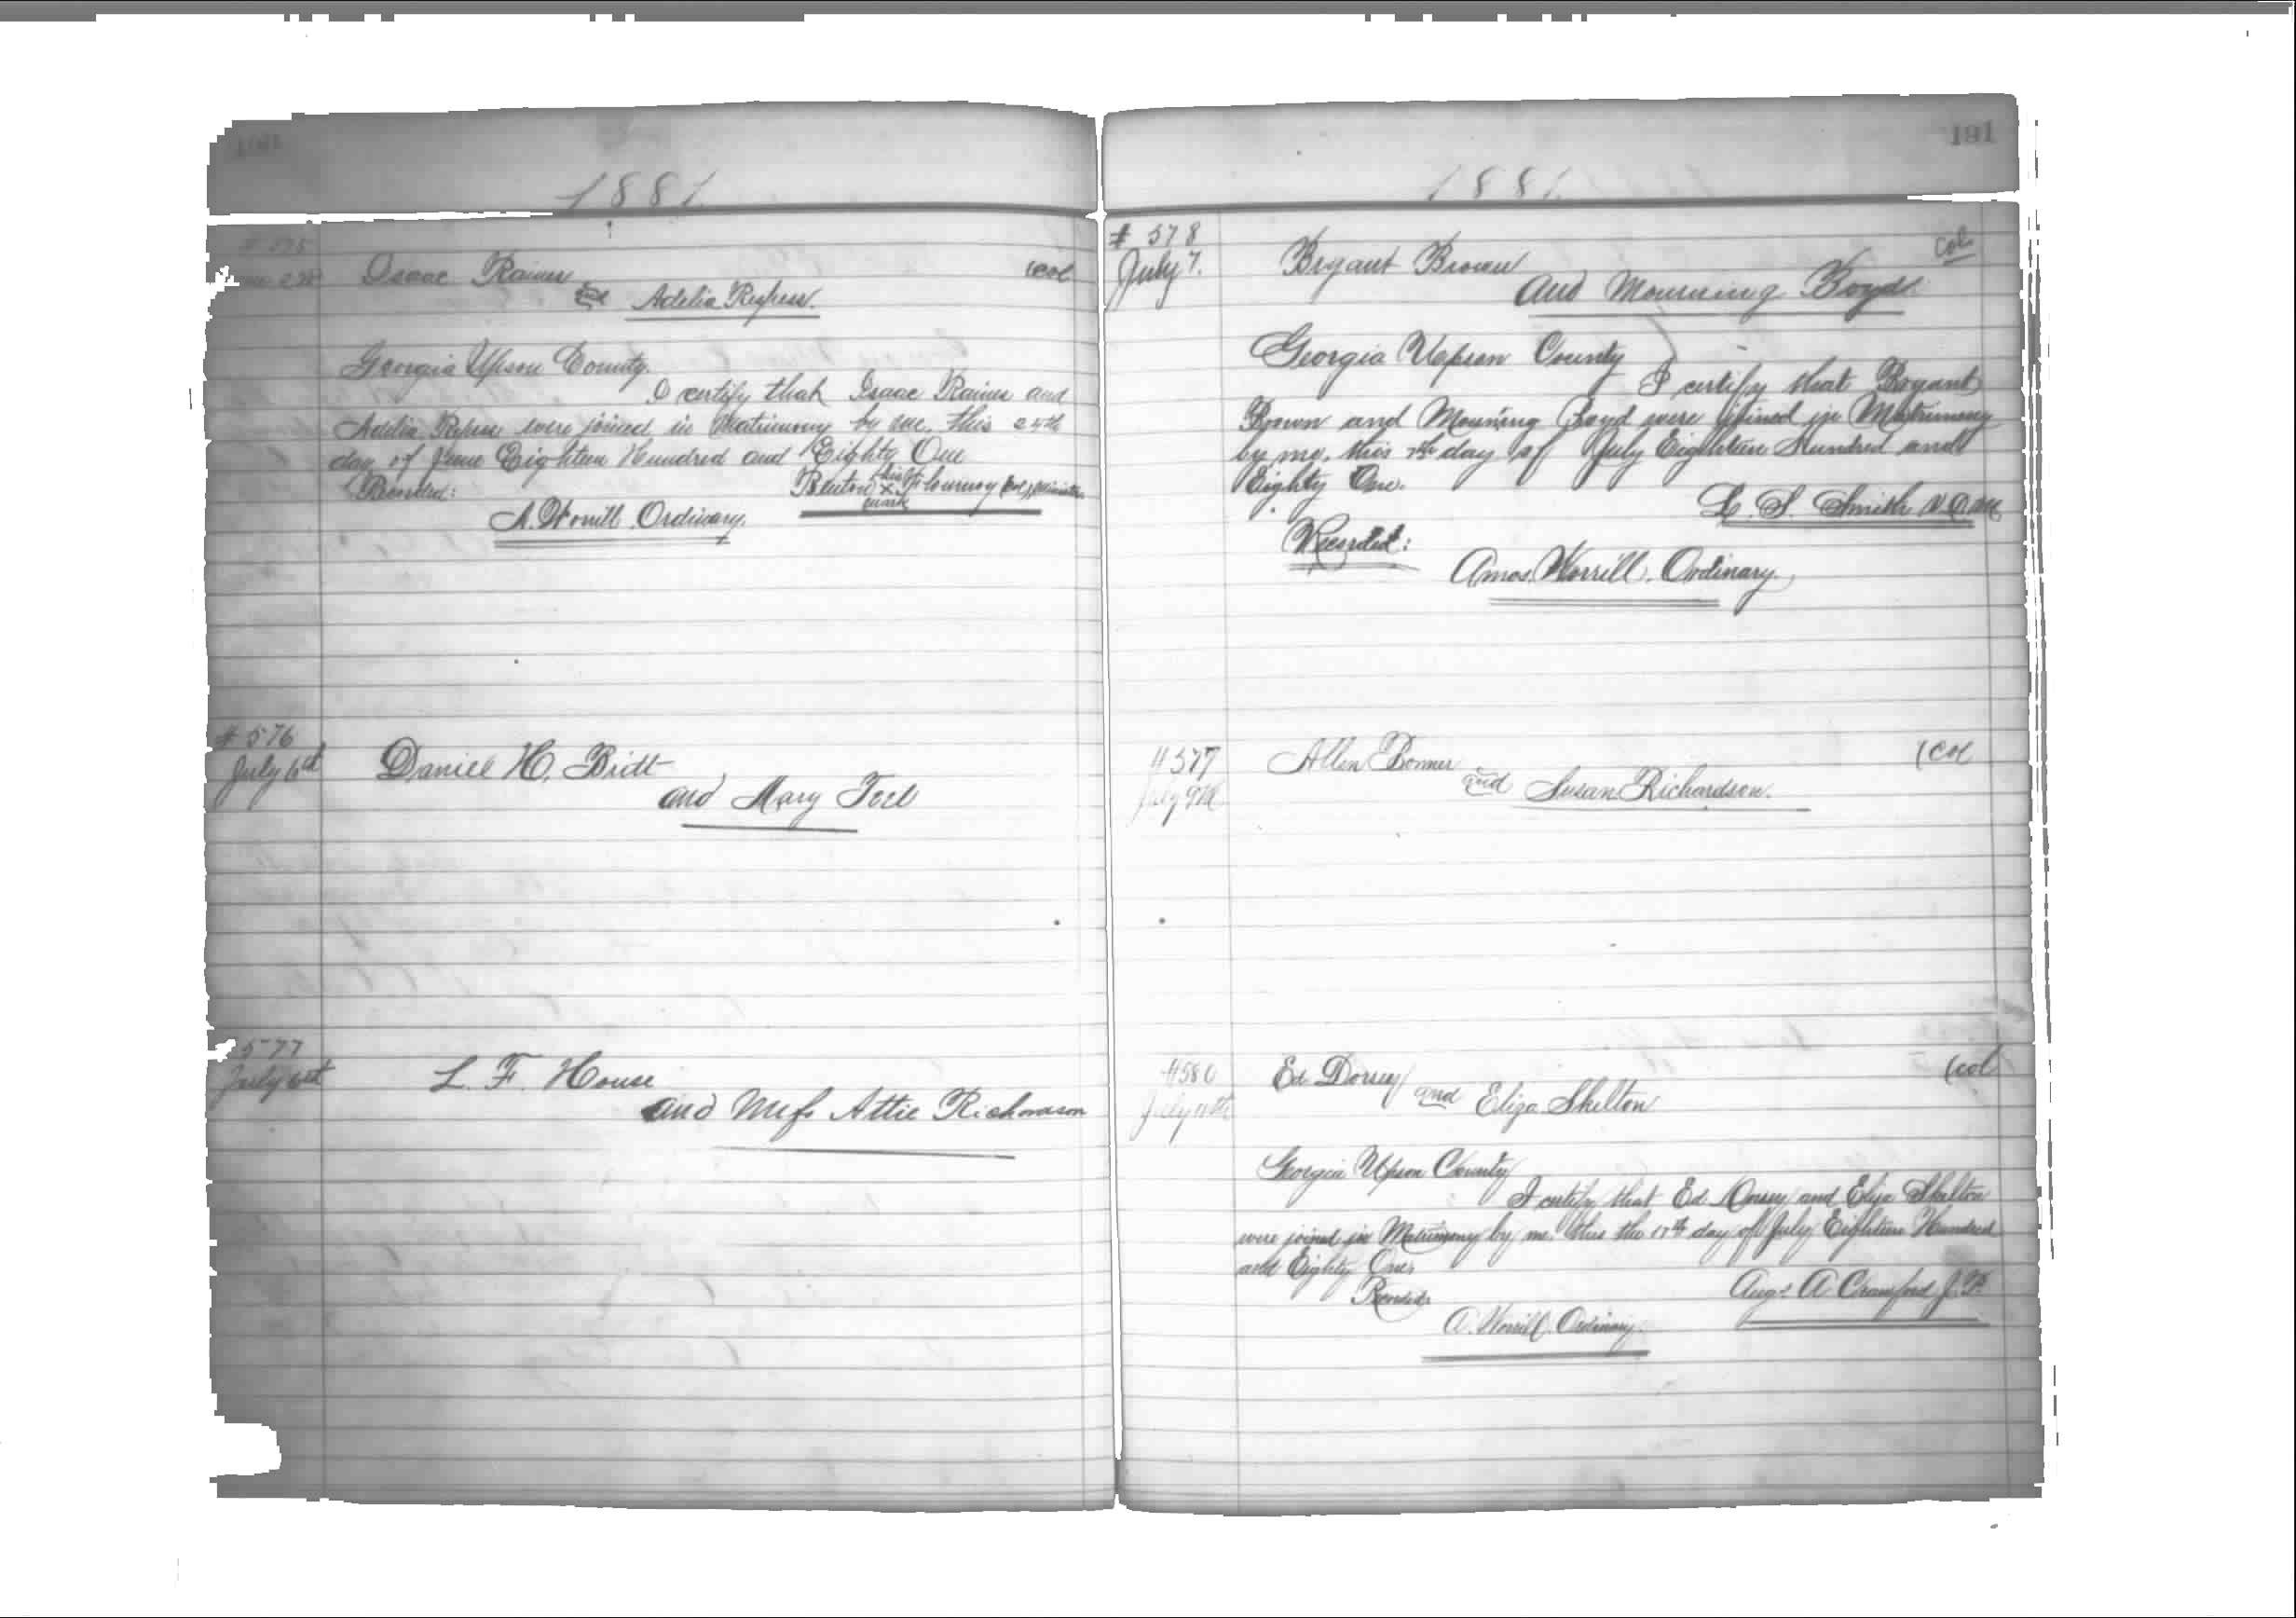 1881.
Isaac Rainer (Col
and Adelia
Georgia Upson County.
I certify that Isaac Rainer and
Adelia were joined in Matrimony by me, this 24th
day of June Eighteen Hundred and Eighty One
Benton his x mark Flournoy
Recorded:
A. Worrill Ordinary.
# 576
July 6th
Daniel H. Britt
and Mary Teel
577
July 6th
L. F. House
and Miss Attie Richardson
191
1881.
# 578
July 7.
Bryant Brown Col
and Mourning Boyd
Georgia Upson County
I certify that Bryant
Brown and Mourning Boyd were joined in Matrimony
by me, this 7th day of July Eighteen Hundred and
Eighty One.
L. S. Smith
Recorded:
Amos Worrill, Ordinary.
# 577
July 9th
Allen Bonner (Col
and Susan Richardson.
# 580
July 11th
Ed Dorsey and Eliza Shelton (Col
Georgia Upson County
I certify that Ed Dorsey and Eliza Shelton
were joined in Matrimony by me this the 17th day of July Eighteen Hundred
and Eighty One.
Augs. A Crawford J.P.
Recorded.
A. Worrill, Ordinary.